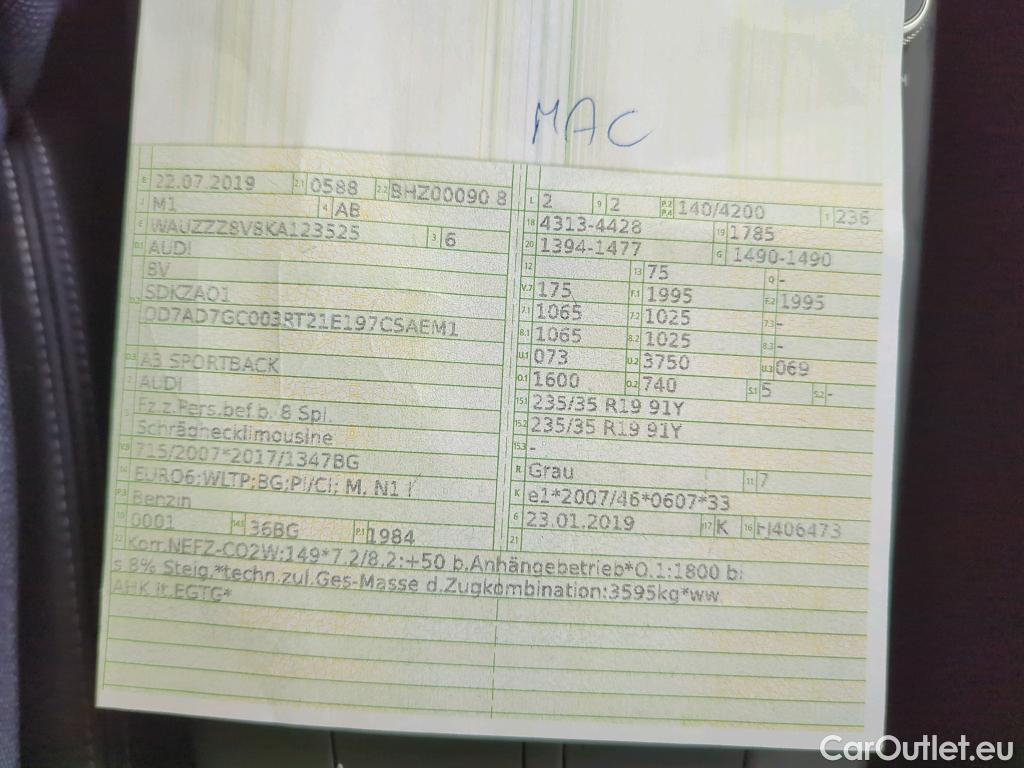 MAC
B 22.07.2019 2.1 0588 2.2 BHZ00090 8
J M1 4 AB
E WAUZZZ8V8KA123525 3 6
D.1 AUDI
8V
D.2 SDKZA01
0D7AD7GC003RT21E197CSAEM1
D.3 A3 SPORTBACK
2 AUDI
5 Fz.z.Pers.bef.b. 8 Spl.
Schräghecklimousine
V.9 715/2007*2017/1347BG
14 EURO6;WLTP;BG;PI/CI; M, N1 I
P.3 Benzin
10 0001 14.1 36BG P.1 1984
L 2 9 2 P.2 P.4 140/4200 T 236
18 4313-4428 19 1785
20 1394-1477 G 1490-1490
12 13 75 Q -
V.7 175 F.1 1995 F.2 1995
7.1 1065 7.2 1025 7.3 -
8.1 1065 8.2 1025 8.3 -
U.1 073 U.2 3750 U.3 069
O.1 1600 O.2 740 S.1 5 S.2 -
15.1 235/35 R19 91Y
15.2 235/35 R19 91Y
15.3 -
R Grau 11 7
K e1*2007/46*0607*33
6 23.01.2019 17 K 16 FI406473
21
22 Korr.NEFZ-CO2W:149*7.2/8.2:+50 b.Anhängebetrieb*O.1:1800 b:
s 8% Steig.*techn.zul.Ges-Masse d.Zugkombination:3595kg*ww
AHK lt.EGTG*
CarOutlet.eu